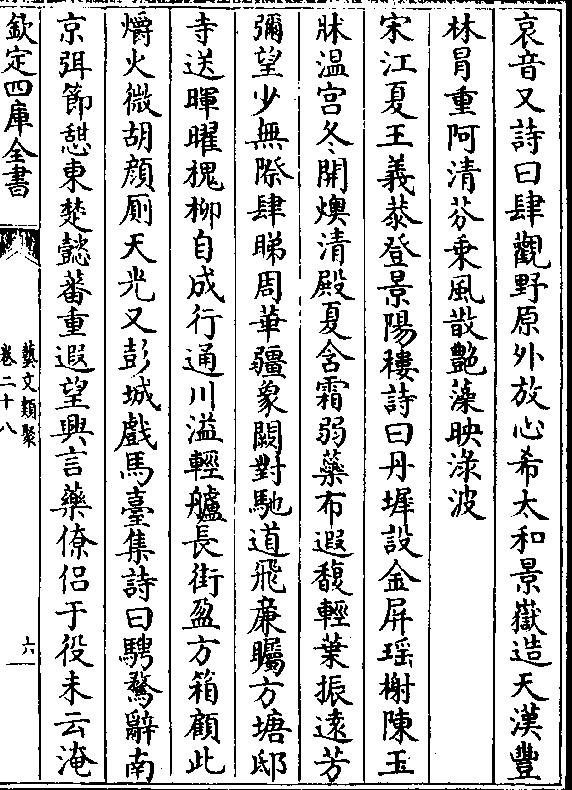 哀音又詩曰肆觀野原外放心希太和景嶽造天漢豐
林冐重阿清芬乗風散艷藻映淥波
宋江夏王義恭登景陽樓詩曰丹墀設金屏瑶榭陳玉
牀温宫冬開燠清殿夏含霜弱蘂布遐馥輕葉振逺芳
彌望少無際肆睇周華疆象闕對馳道飛亷矚方塘邸
寺送暉曜槐柳自成行通川溢輕艫長街盈方箱顧此
爝火微胡顔厠天光又彭城戲馬臺集詩曰騁騖辭南
京弭節憇東楚懿蕃重遐望興言蘂僚侣于役未云淹
欽定四庫全書
藝文類聚
卷二十八
六